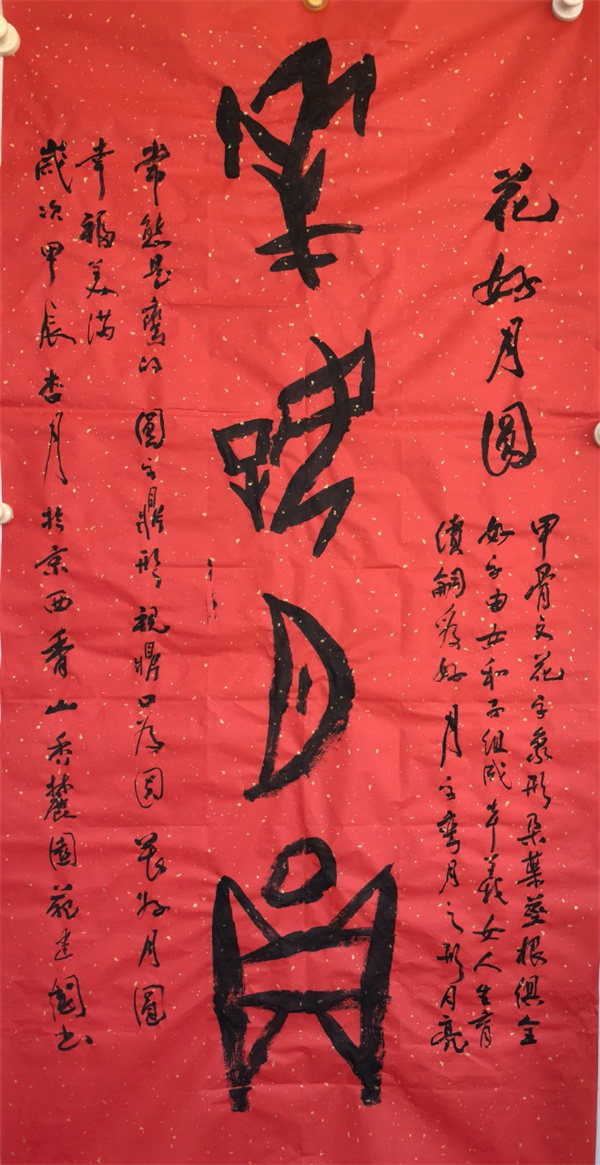 花好月圓
甲骨文花字象形朵葉莖根俱全
好字由女和子組成本義女人生育
續嗣為好 月字彎月之形月亮
花好月員
常態是彎的 圓字鼎形 視鼎口為圓 花好月圓
幸福美滿
歲次甲辰杏月於京西香山香麓園 書